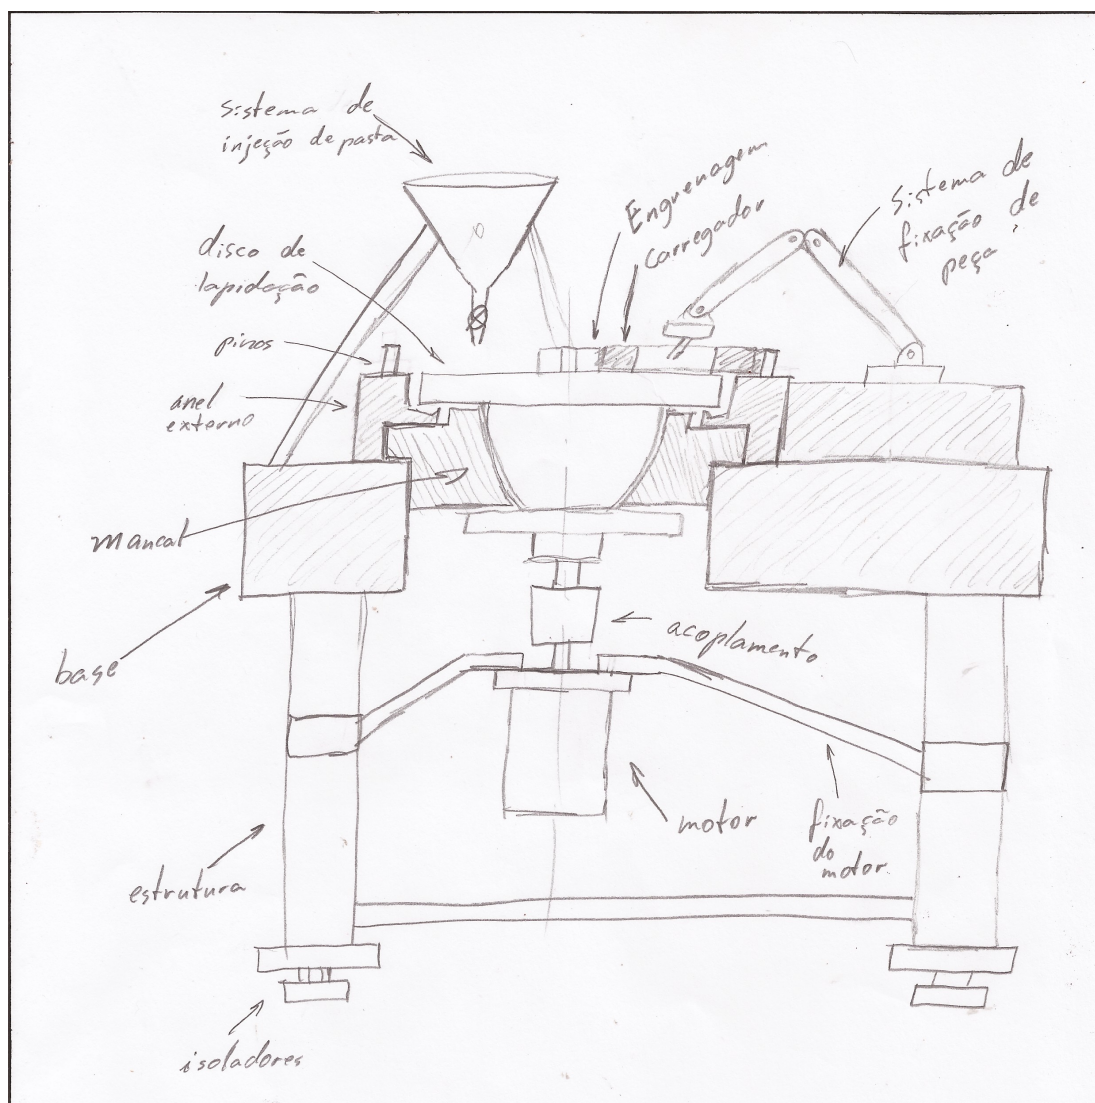 sistema de
injeção de pasta
Engrenagem
carregador
sistema de
fixação de
peça
disco de
lapidação
pinos
anel
externo
mancal
base
acoplamento
motor
fixação
do
motor.
estrutura
isoladores